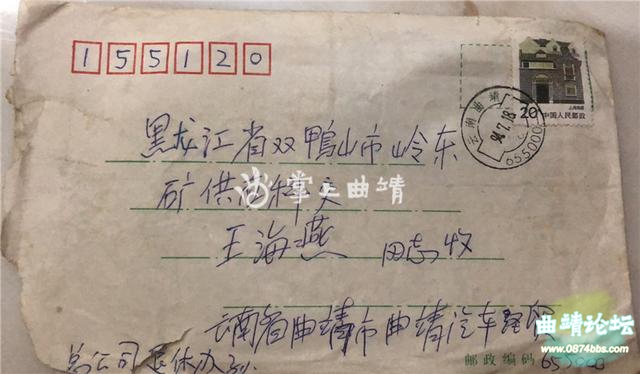 155120
20 上海民居
中国人民邮政
云南曲靖
94.7.18
655000
黑龙江省双鸭山市岭东
矿供应科交
掌上曲靖
王海燕 同志收
云南省曲靖市曲靖汽车经贸
总公司退休办
邮政编码 655000
曲靖论坛
www.0874bbs.com